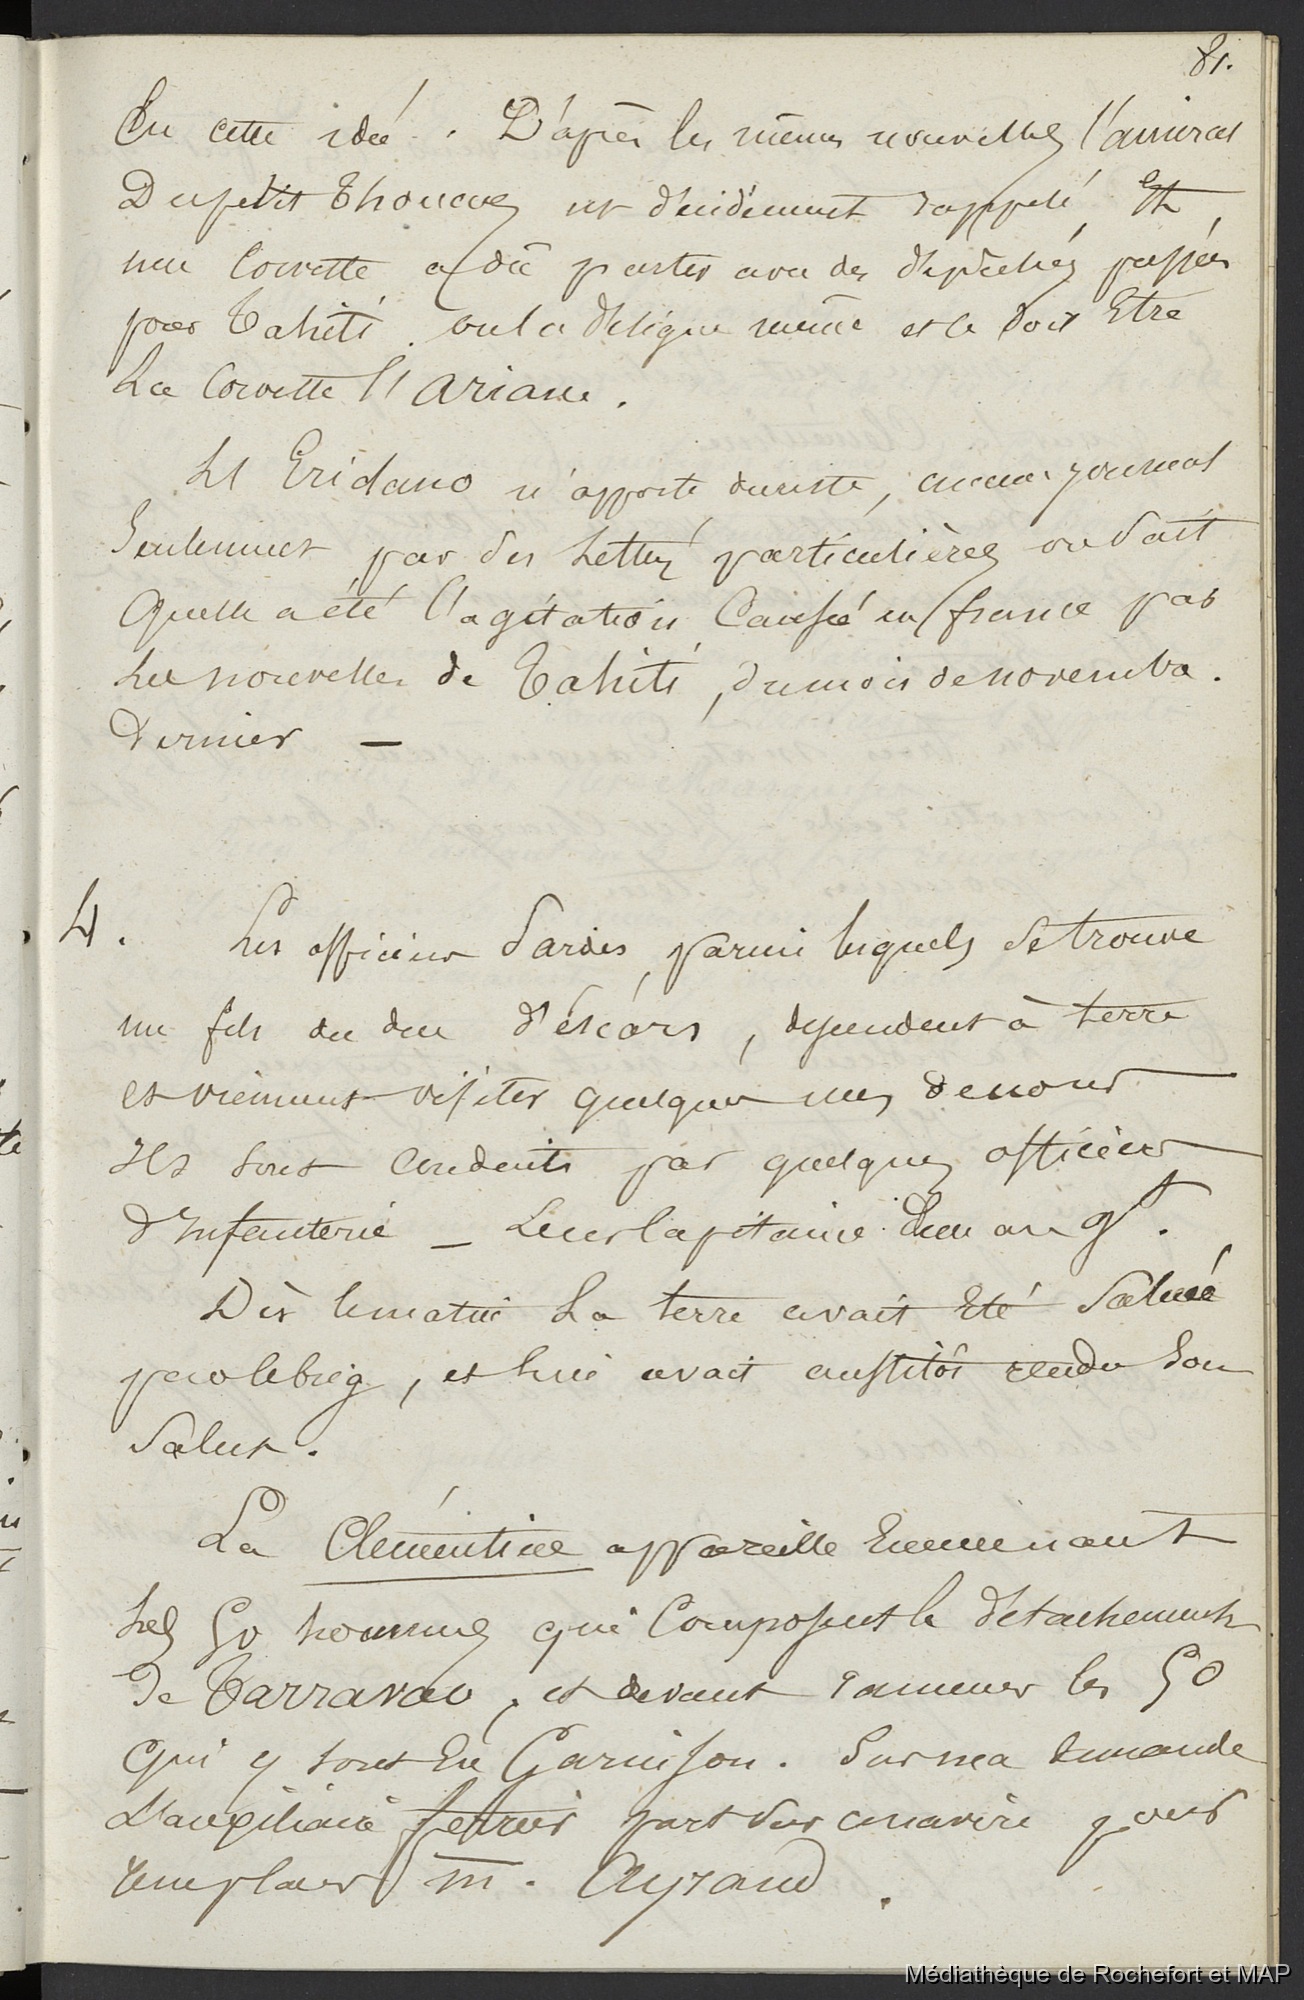 81.
En cette idée. D'après les mêmes nouvelles l'amiral
Dupetit Thouars est décidément rappelé, Et,
une Corvette a dû partir avec des dépêches pressées
pour Tahiti. on la désigne même et ce doit Etre
La Corvette l'Ariane.
Le Eridano n'apporte du reste, aucun journal
Seulement par des Lettres particulières on sait
Quelle a été l'agitation Causée en france par
Les nouvelles de Tahiti, du mois de novembre.
Dernier —
4. Les officiers sardes, parmi lesquels se trouve
un fils du duc d'éscars, descendent à terre
et viennent visiter quelques uns de nous
Ils sont conduits par quelques officiers
d'Infanterie — Leur Capitaine
Dès le matin La terre avait Eté Saluée
par le brig, et lui avait aussitôt rendu son
Salut.
La Clémentine appareille Emmenant
Les 50 hommes qui Composent le détachement
de Tarravao, et devant ramener les 50
Qui y sont En Garnison. Sur ma demande
L'auxiliaire ferrier part sur ce navire pour
remplacer m. Ayraud.
Médiathèque de Rochefort et MAP